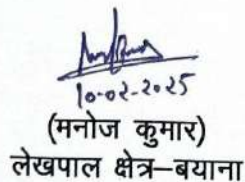 10-02-2025
(मनोज कुमार)
लेखपाल क्षेत्र–बयाना